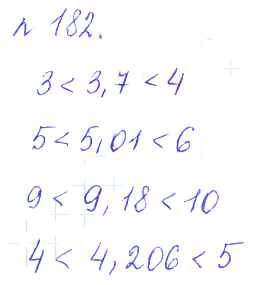 n 182.
3 < 3,7 < 4
5 < 5,01 < 6
9 < 9,18 < 10
4 < 4,206 < 5